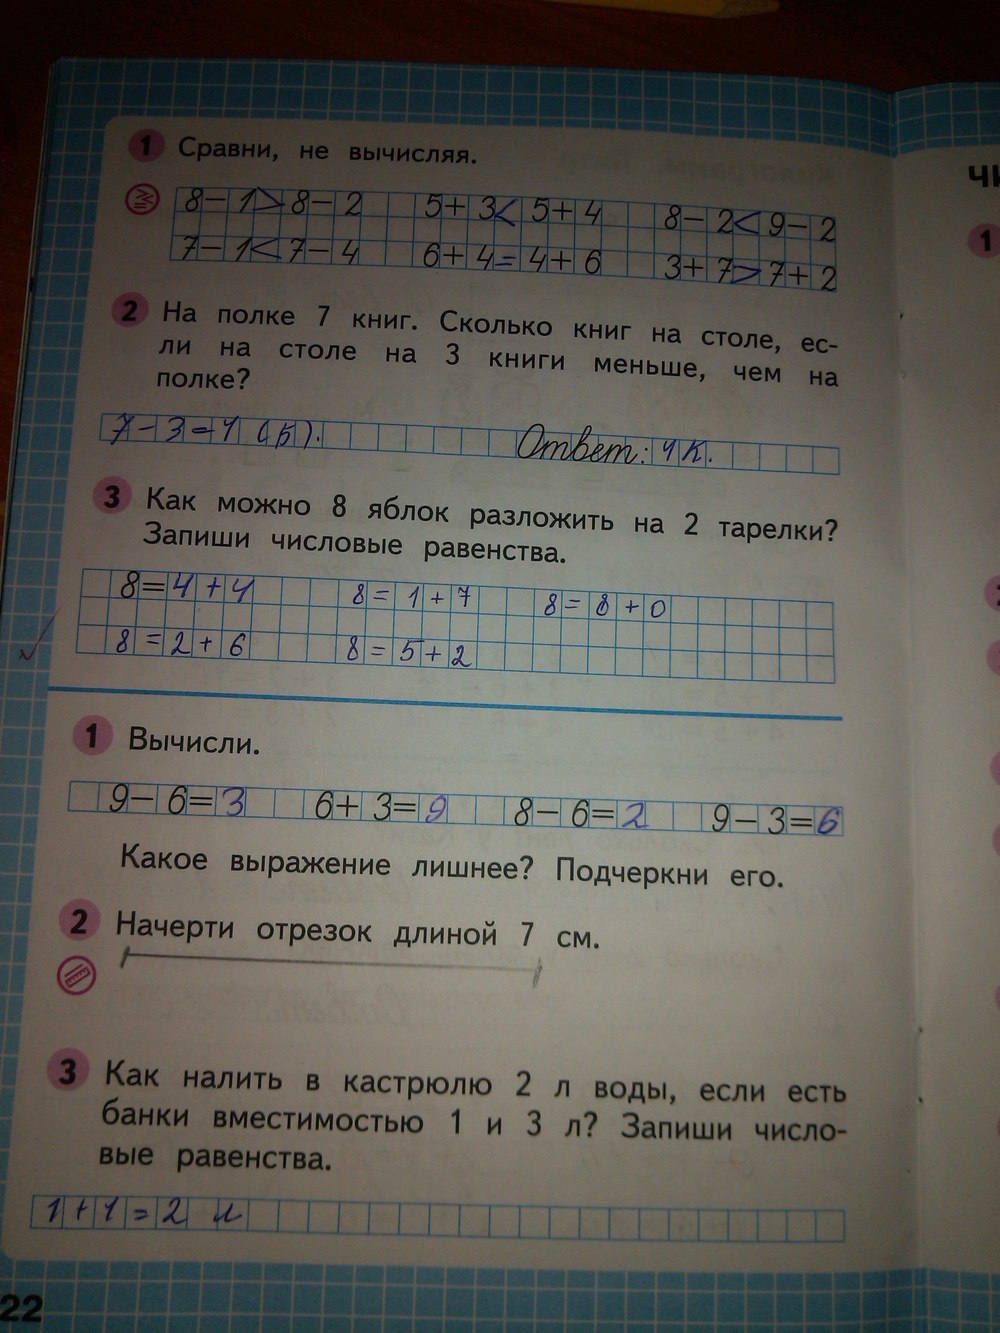 1 Сравни, не вычисляя.
8-1>8-2 5+3<5+4 8-2<9-2
7-1<7-4 6+4=4+6 3+7>7+2
2 На полке 7 книг. Сколько книг на столе, ес-
ли на столе на 3 книги меньше, чем на
полке?
7-3=4 (к). Ответ: 4 к.
3 Как можно 8 яблок разложить на 2 тарелки?
Запиши числовые равенства.
8=4+4 8=1+7 8=8+0
8=2+6 8=5+2
1 Вычисли.
9-6=3 6+3=9 8-6=2 9-3=6
Какое выражение лишнее? Подчеркни его.
2 Начерти отрезок длиной 7 см.
3 Как налить в кастрюлю 2 л воды, если есть
банки вместимостью 1 и 3 л? Запиши число-
вые равенства.
1+1=2 л
22
чи
1